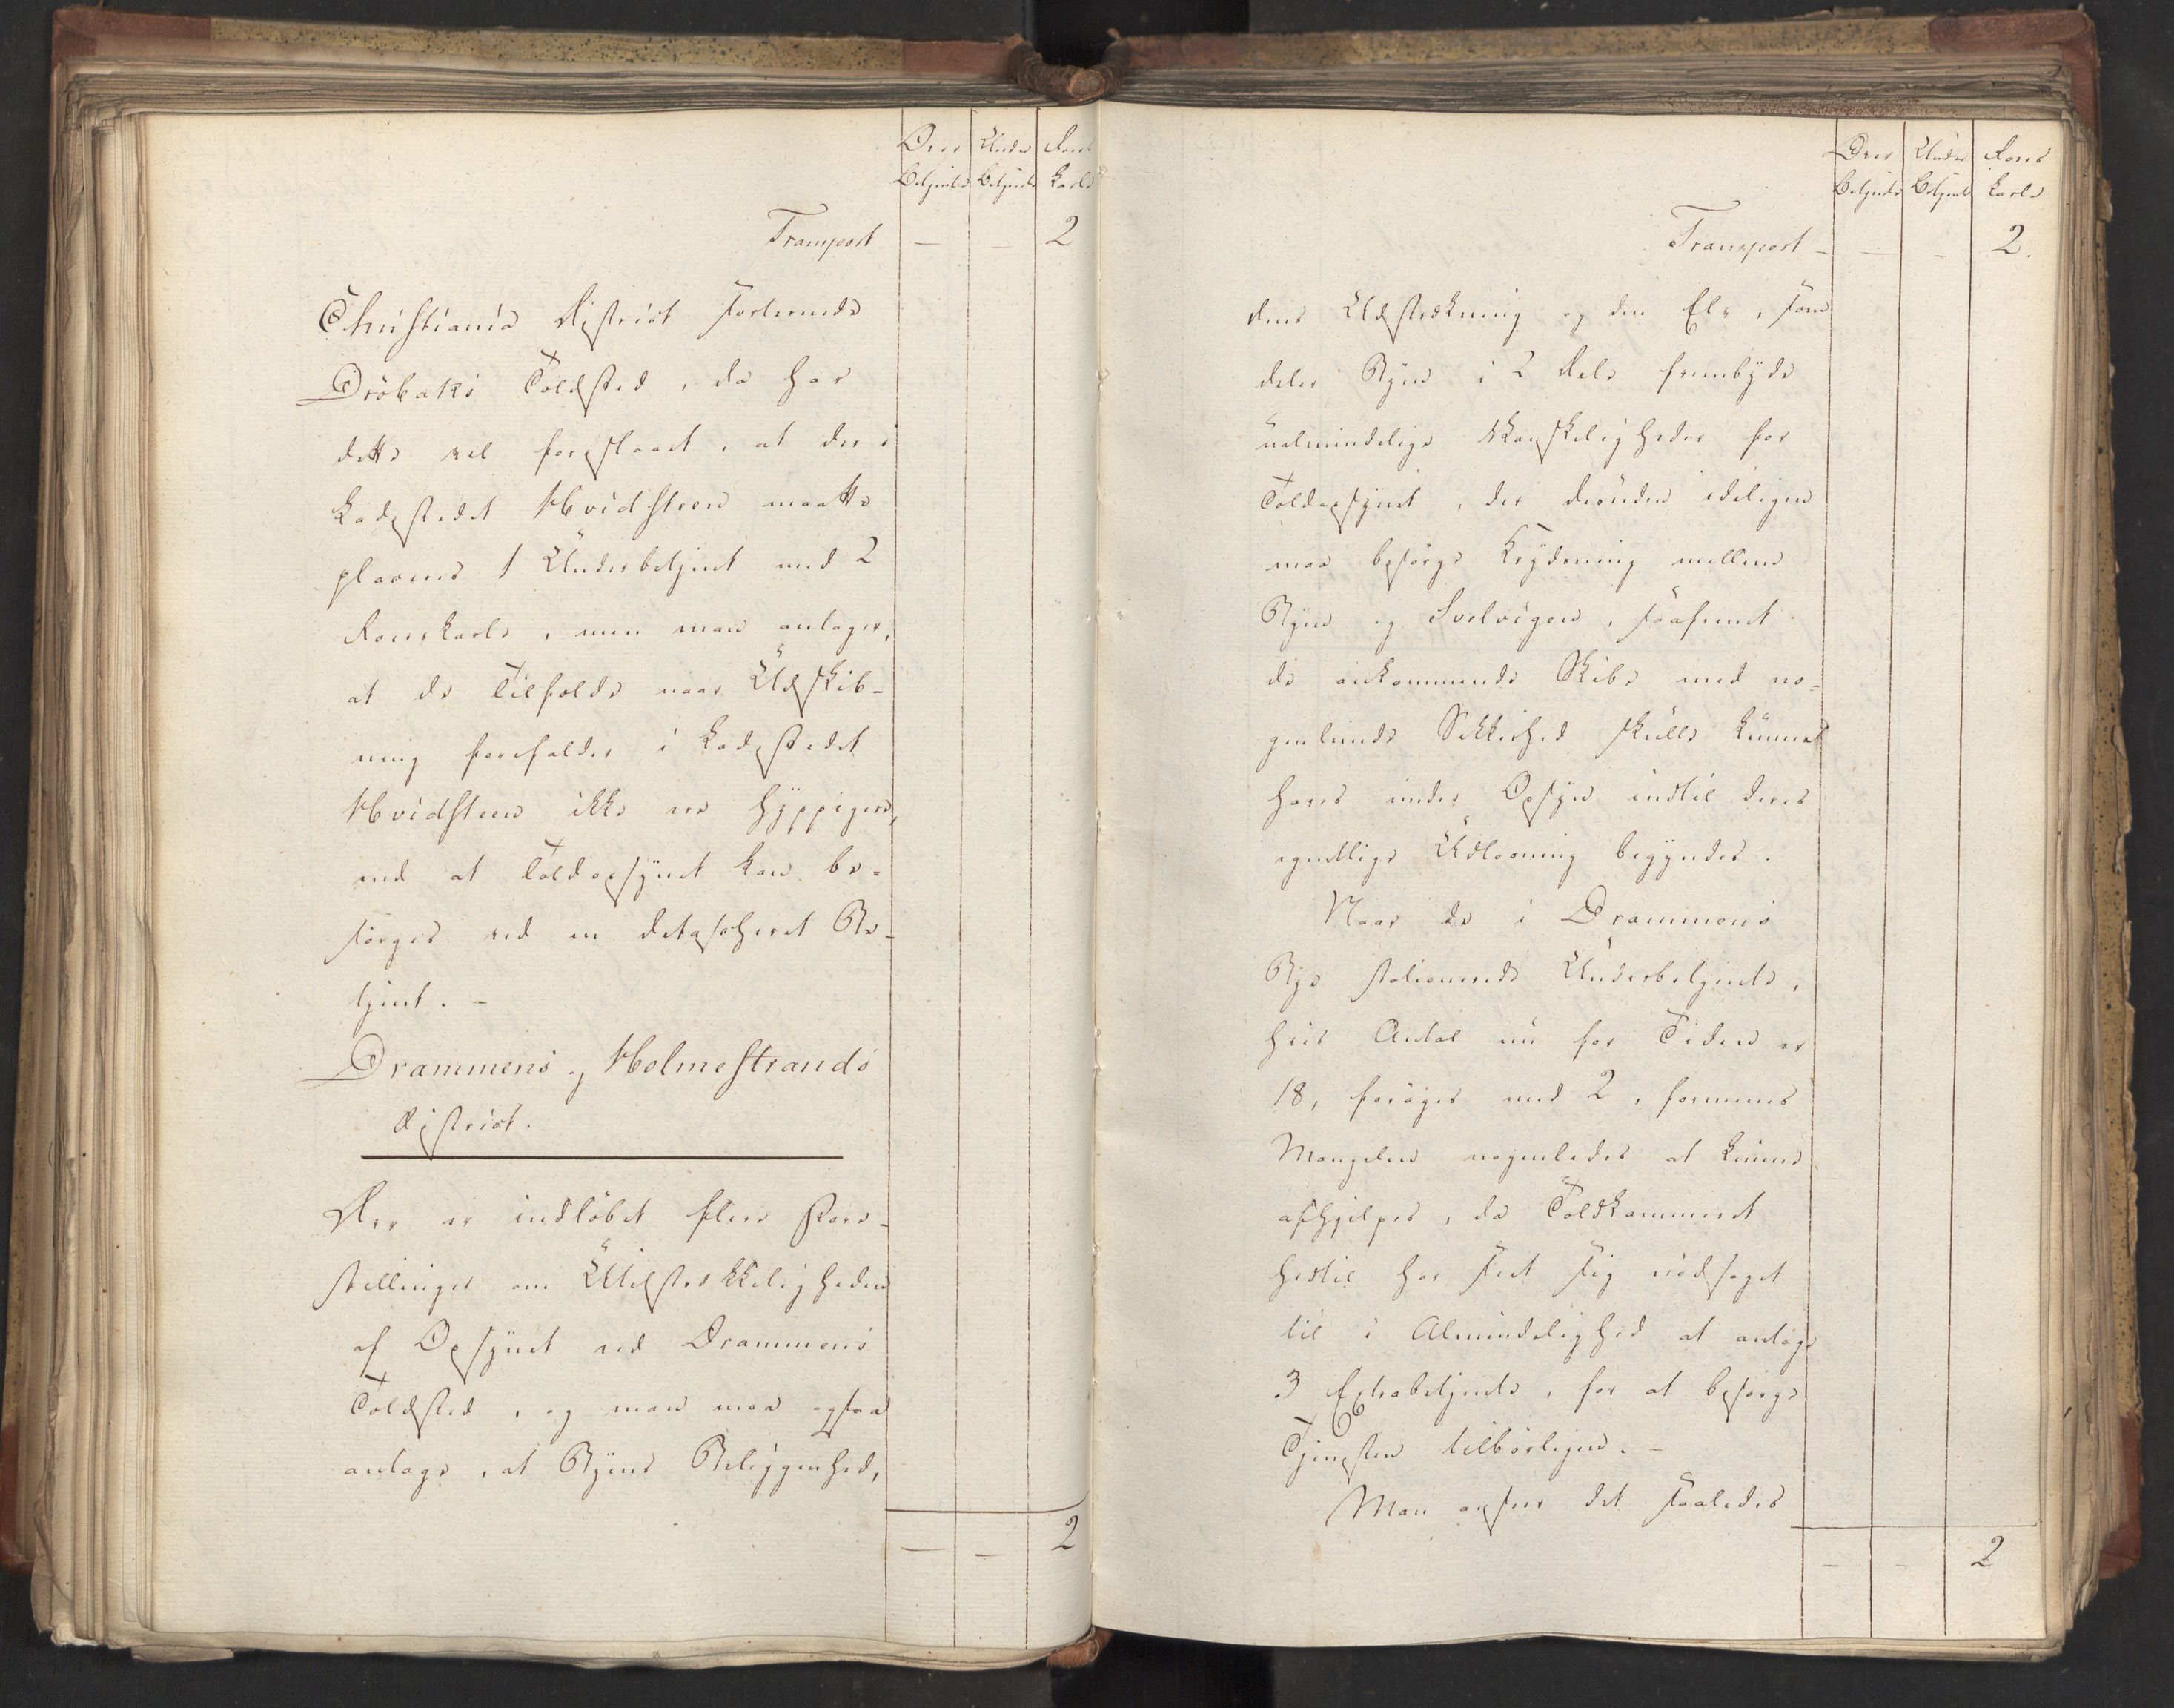 Over Under Roers
Betjente Betjente Karle
Transport — — 2
Christiania District sorterende
Dröbaks Toldsted, da har
dette vel foreslaaet, at der i
Ladestedet Hvidsteen maatte
placeres 1 Underbetjent med 2
Roerskarle, men man antager,
at de Tilfælde naar Udskib-
ning forefalder i Ladestedet
Hvidsteen ikke ere hyppigere,
end at Toldopsynet kan be-
sörges ved en detascheret Be-
tjent. –
Drammens og Holmestrands
District.
Der er indlöbet flere Fore-
stillinger om Utilstrækkeligheden
af Opsynet ved Drammens
Toldsted, og man maa ogsaa
antage, at Byens Beliggenhed,
— — 2
Over Under Roers
Betjente Betjente Karle
Transport – — – 2.
dens Udstrækning og den Elv, som
deler Byen i 2 Dele frembyde
ualmindelige Vanskeligheder for
Toldopsynet, der desuden ideligen
maa besörge Krydsning mellem
Byen og Svelvigen, saafremt
de ankommende Skibe med no-
genlunde Sikkerhed skulle kunne
haves under Opsyn indtil deres
egentlige Udlosning begyndes.
Naar de i Drammens
Bye stationerede Underbetjente,
hvis Antal nu for Tiden er
18, foröges med 2, formenes
Mangelen nogenledes at kunne
afhjelpes, da Toldkammeret
hidtil har seet sig nödsaget
til i Almindelighed at antage
3 Extrabetjente, for at besörge
Tjenesten tilbörligen. –
Man anseer det saaledes
— – 2